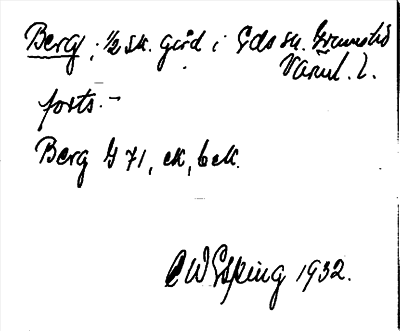 Berg, ; 1/2 sk. gård i Eds sn. Grumshd
Värml. l.
forts. -
Berg G 71, ek, bek.
C W Esping 1932.